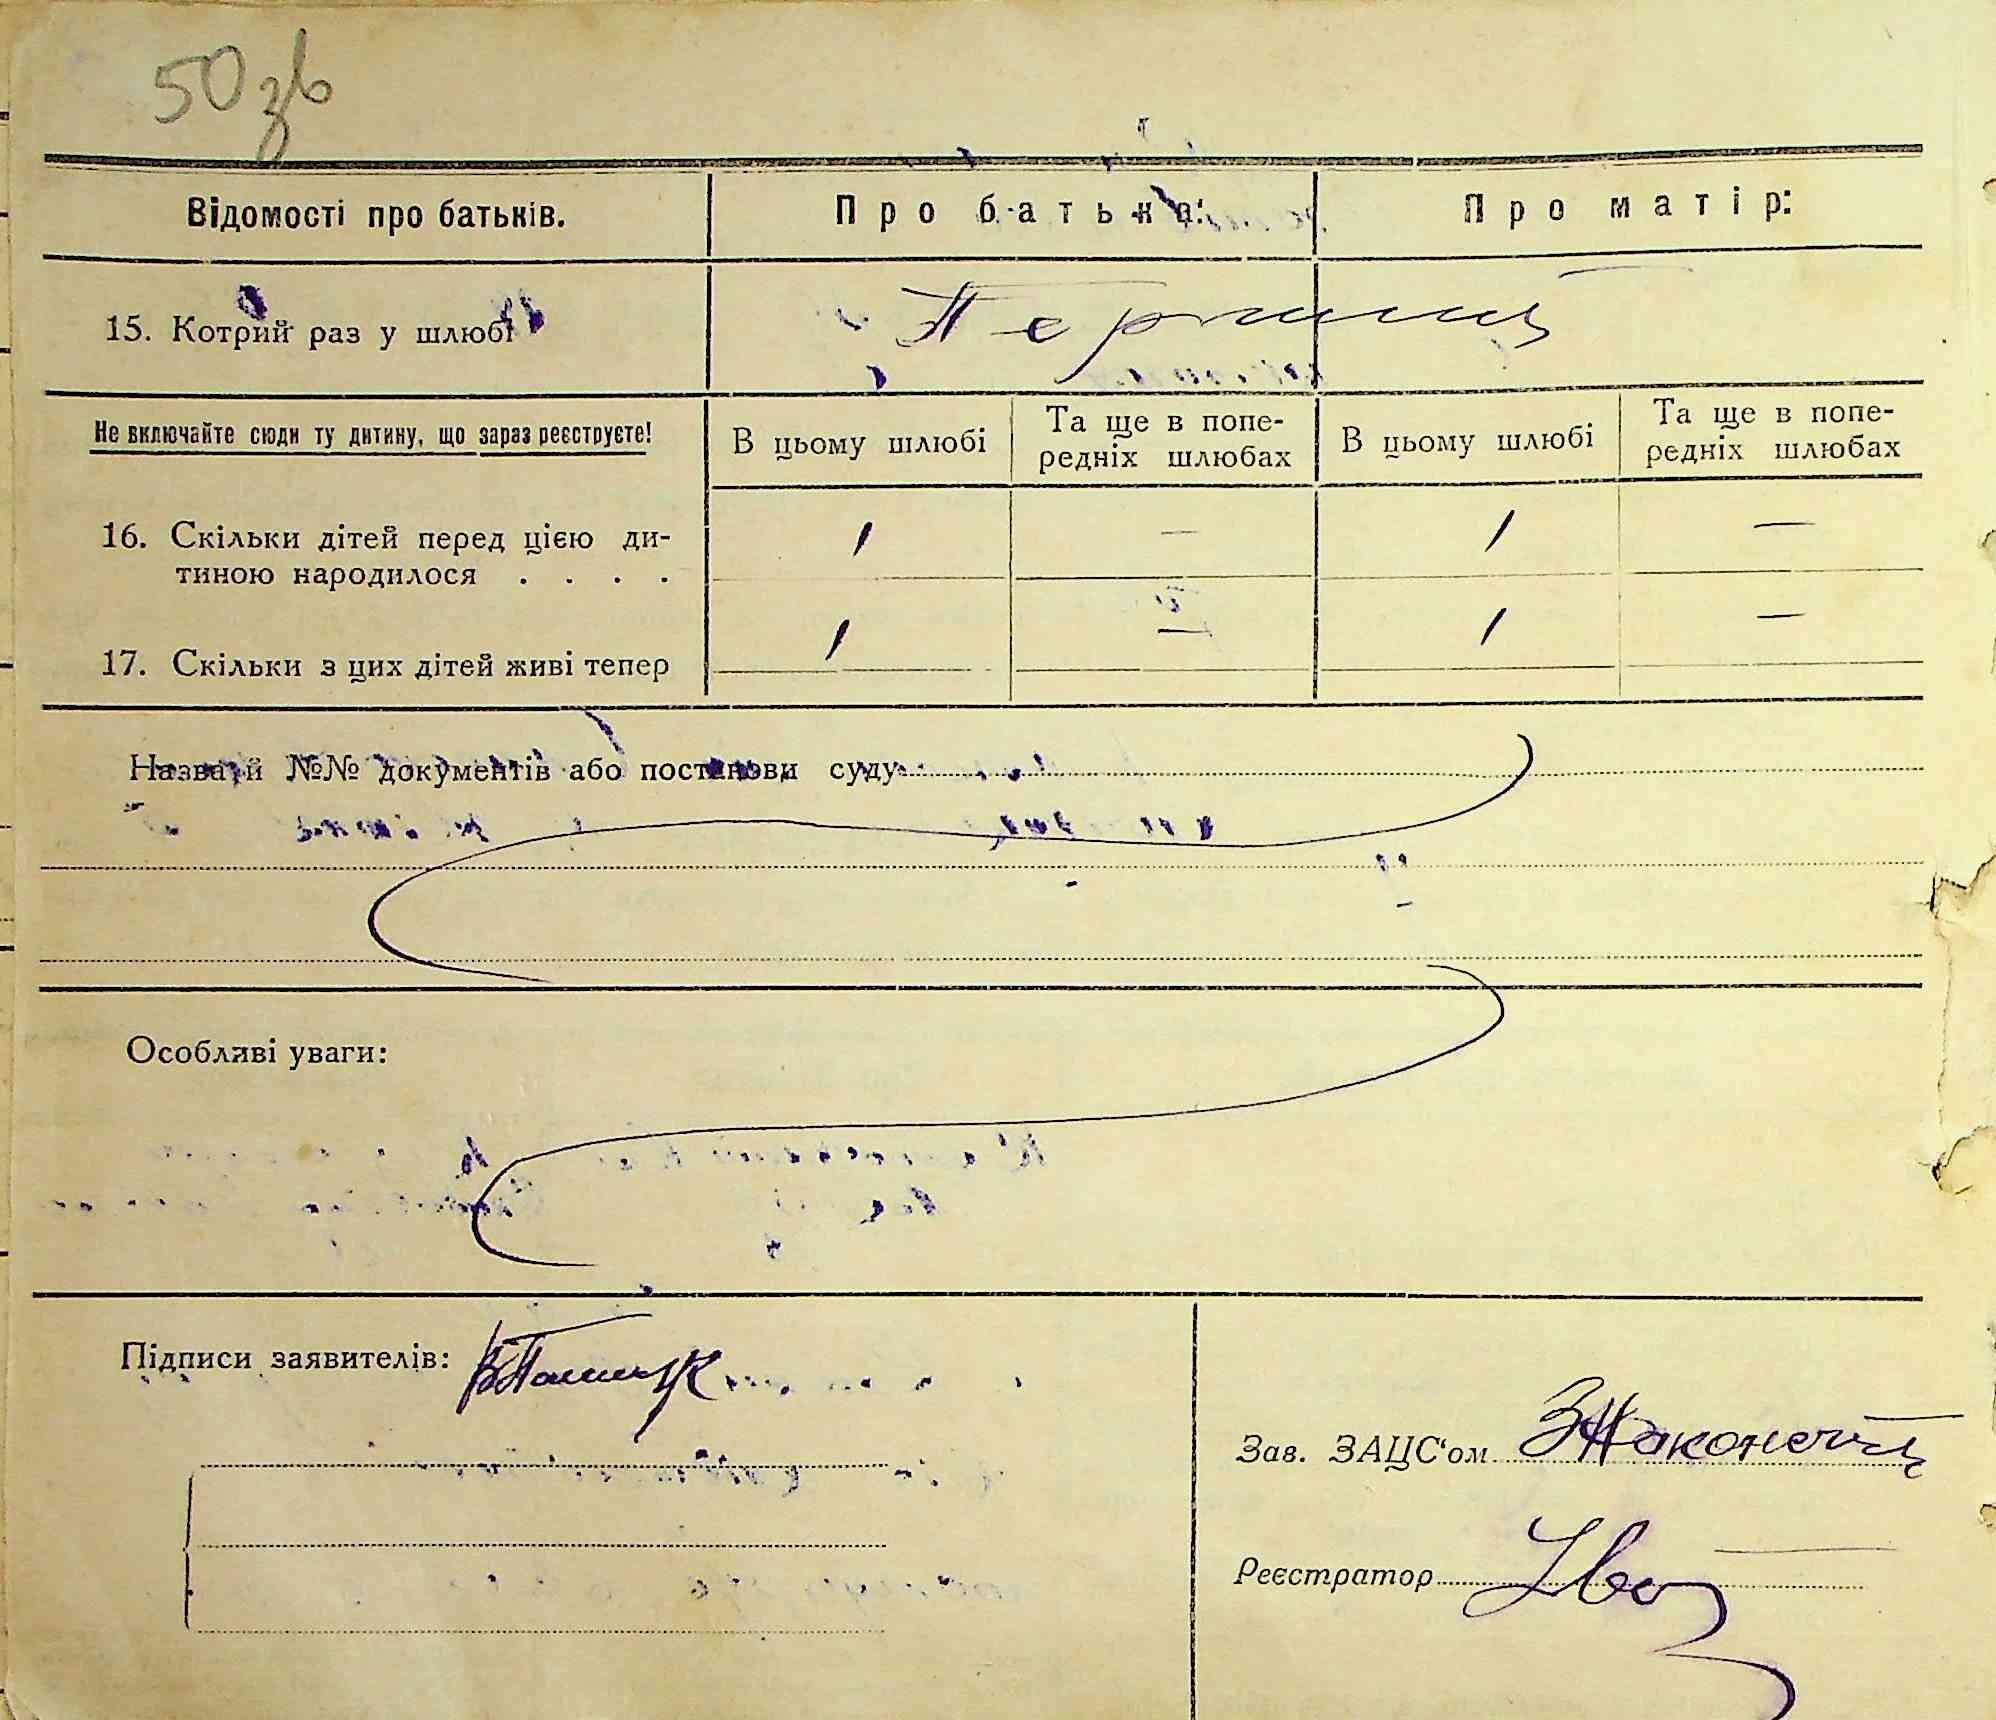 50 зв
Відомості про батьків. Про батька: Про матір:
15. Котрий раз у шлюбі Перший
Не включайте сюди ту дитину, що зараз реєструєте! В цьому шлюбі Та ще в попередніх шлюбах В цьому шлюбі Та ще в попередніх шлюбах
16. Скільки дітей перед цією ди-
тиною народилося . . . . 1 — 1 —
17. Скільки з цих дітей живі тепер 1 — 1 —
Назва й №№ документів або постанови суду
Особливі уваги:
Підписи заявителів:
Зав. ЗАЦС'ом
Реєстратор